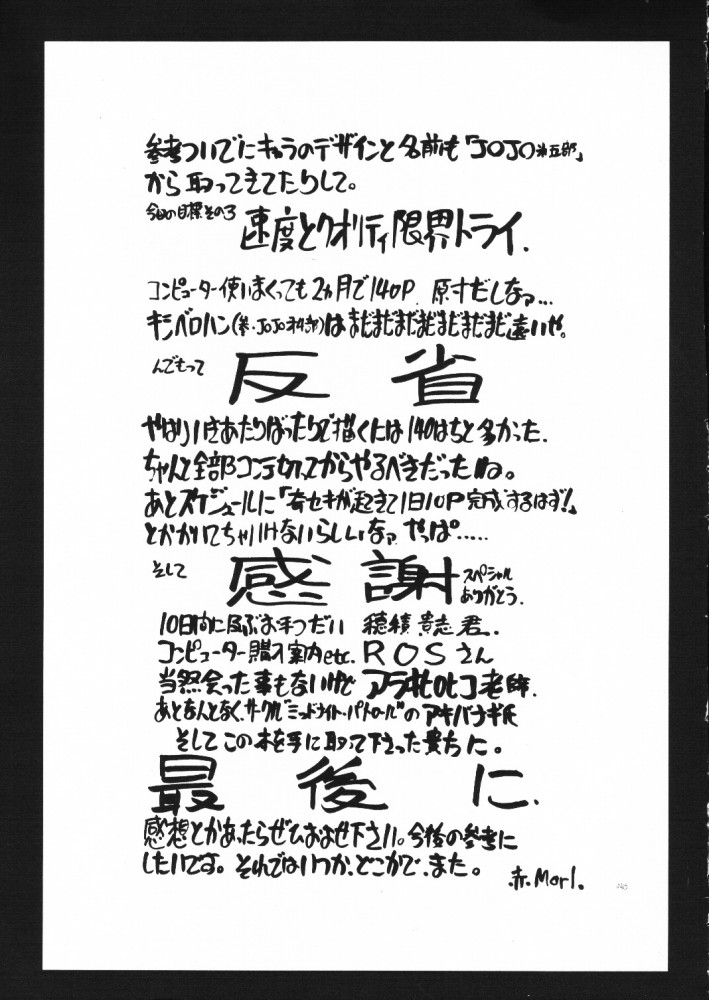 参考ついでにキャラのデザインと名前も「JOJO第五部」
から取ってきてたりして。
今回の目標その3
速度とクオリティ限界トライ.
コンピューター使いまくっても2ヵ月で140P. 原寸だしなァ…
キシベロハン(参・JOJO)はまだまだまだまだまだまだまだ遠いや。
んでもって
反省
やはり行きあたりばったりで描くには140はちと多かった.
ちゃんと全部コンテ切ってからやるべきだったね。
あとスケジュールに「奇セキが起きて1日10P完成するはず!」
とかかいてちゃいけないらしいなァ やっぱ.....
そして
感謝
スペシャル
ありがとう.
10日間に及ぶお手つだい 穂積貴志君.
コンピューター購入案内etc. ROSさん
当然会った事もないけど アラキヒロヒコ老師.
あとなんとなく、サークル“ミッドナイト・パトロール”のアキバナギ氏
そしてこの本を手に取って下さった貴方に。
最後に.
感想とかあったらぜひおよせ下さい。今後の参考に
したいです。それではいつか、どこかで、また。
赤.Marl.
140